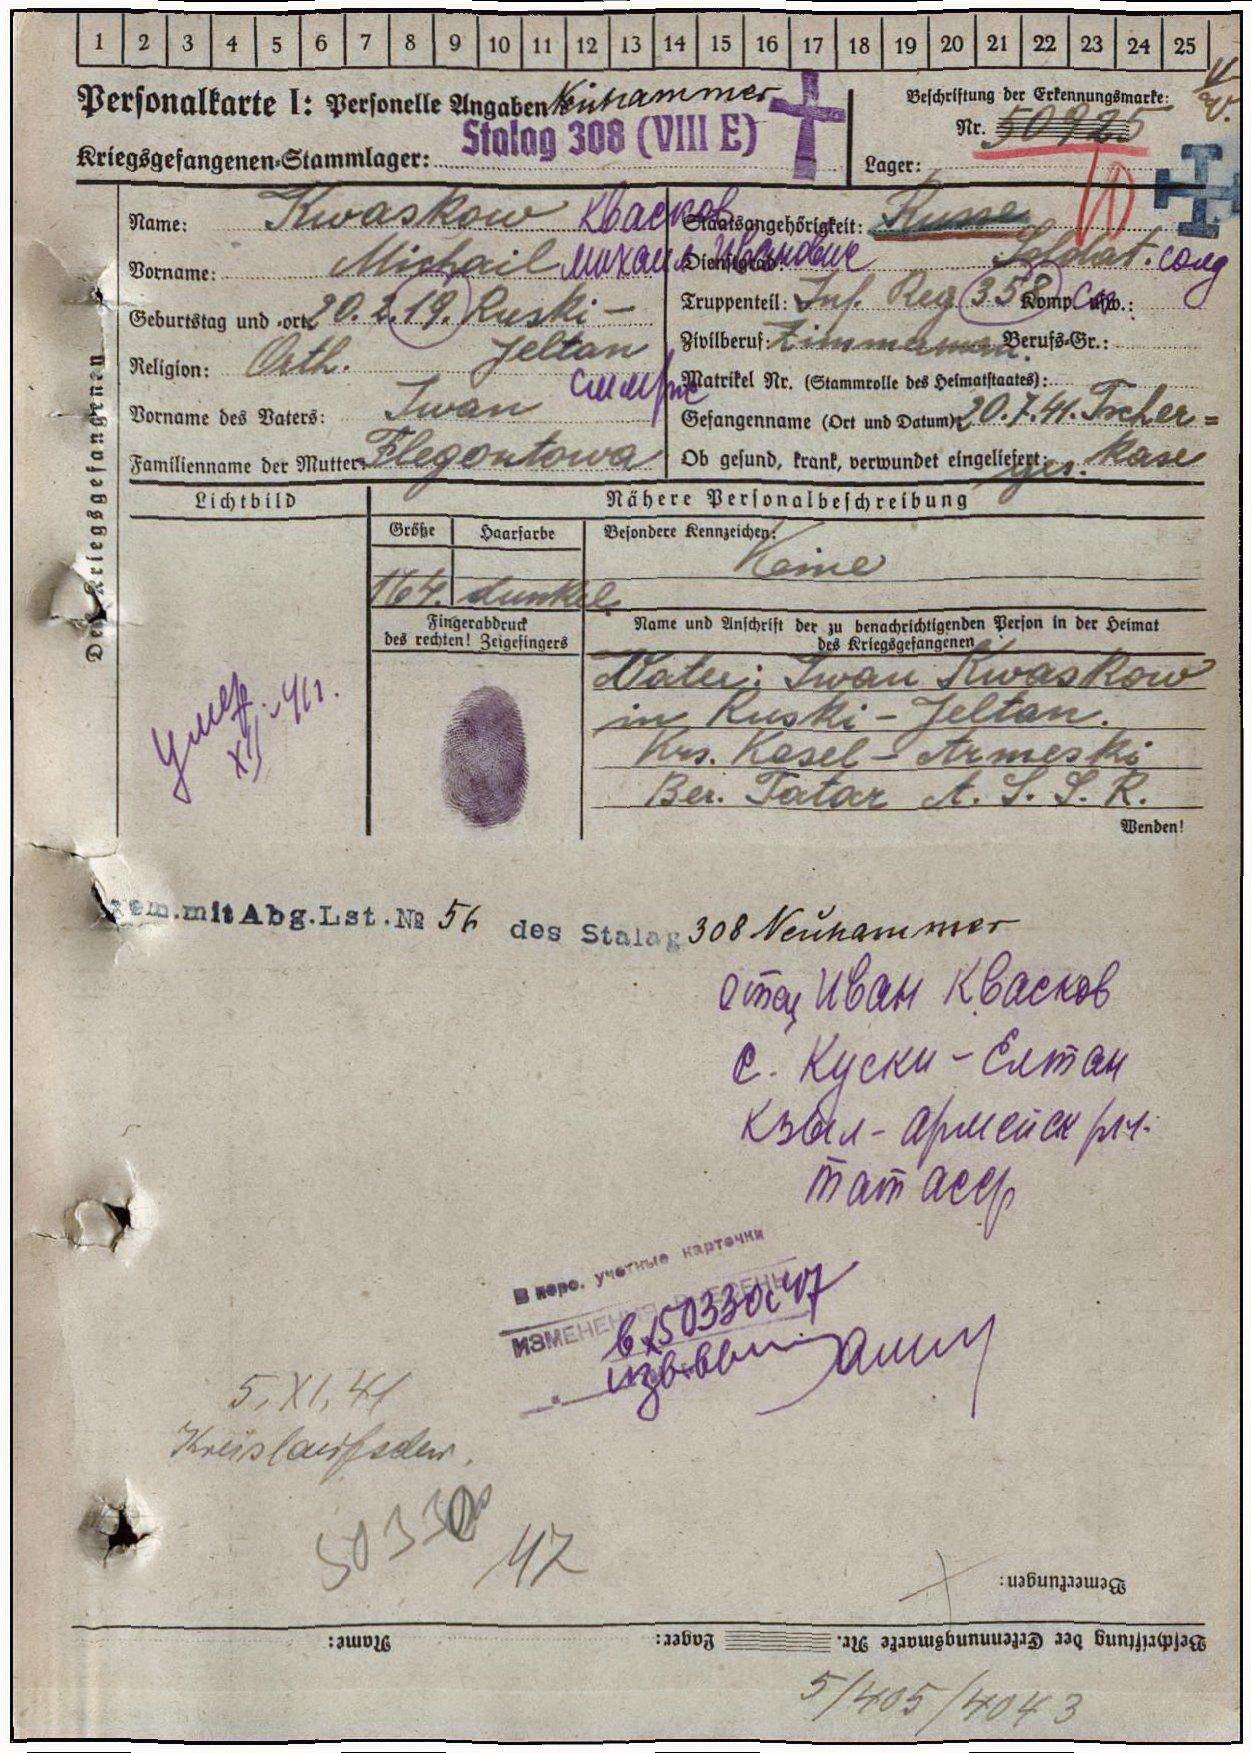 1 2 3 4 5 6 7 8 9 10 11 12 13 14 15 16 17 18 19 20 21 22 23 24 25
Personalkarte I: Personelle Angaben Neuhammer
Beschriftung der Erkennungsmarke:
Stalag 308 (VIII E)
Nr. 50925
Kriegsgefangenen-Stammlager:
Lager:
Des Kriegsgefangenen
Name: Kwaskow Квасков
Staatsangehörigkeit: Russe
Vorname: Michail Михаил Иванович
Dienstgrad: Soldat. солд
Geburtstag und -ort: 20.2.19. Kuski-
Truppenteil: Inf. Reg. 358 Komp. usw.:
Religion: Orth. Jeltan
Zivilberuf: Zimmermann. Berufs-Gr.:
Matrikel Nr. (Stammrolle des Heimatstaates):
Vorname des Vaters: Iwan
Gefangenname (Ort und Datum): 20.7.41. Tscher=
Familienname der Mutter: Flegontowa
Ob gesund, krank, verwundet eingeliefert: ges. kase
Lichtbild
Nähere Personalbeschreibung
Größe
Haarfarbe
Besondere Kennzeichen:
Keine
164. dunkel
Fingerabdruck
des rechten! Zeigefingers
Name und Anschrift der zu benachrichtigenden Person in der Heimat
des Kriegsgefangenen
Vater: Iwan Kwaskow
in Kuski-Jeltan.
Krs. Kasel-Armeski
Ber. Tatar A. S. S. R.
умер
XII-41г.
Wenden!
gem.mit Abg.Lst.№ 56 des Stalag 308 Neuhammer
отец Иван Квасков
с. Куски-Елтан
Кзыл-Армейск рн.
тат асср
В перс. учетные карточки
ИЗМЕНЕНИЯ ВНЕСЕНЫ
вх50330с47
5.XI.41
50330
47
Bemerkungen:
Beschriftung der Erkennungsmarke Nr.
Lager:
Name:
5/405/4043